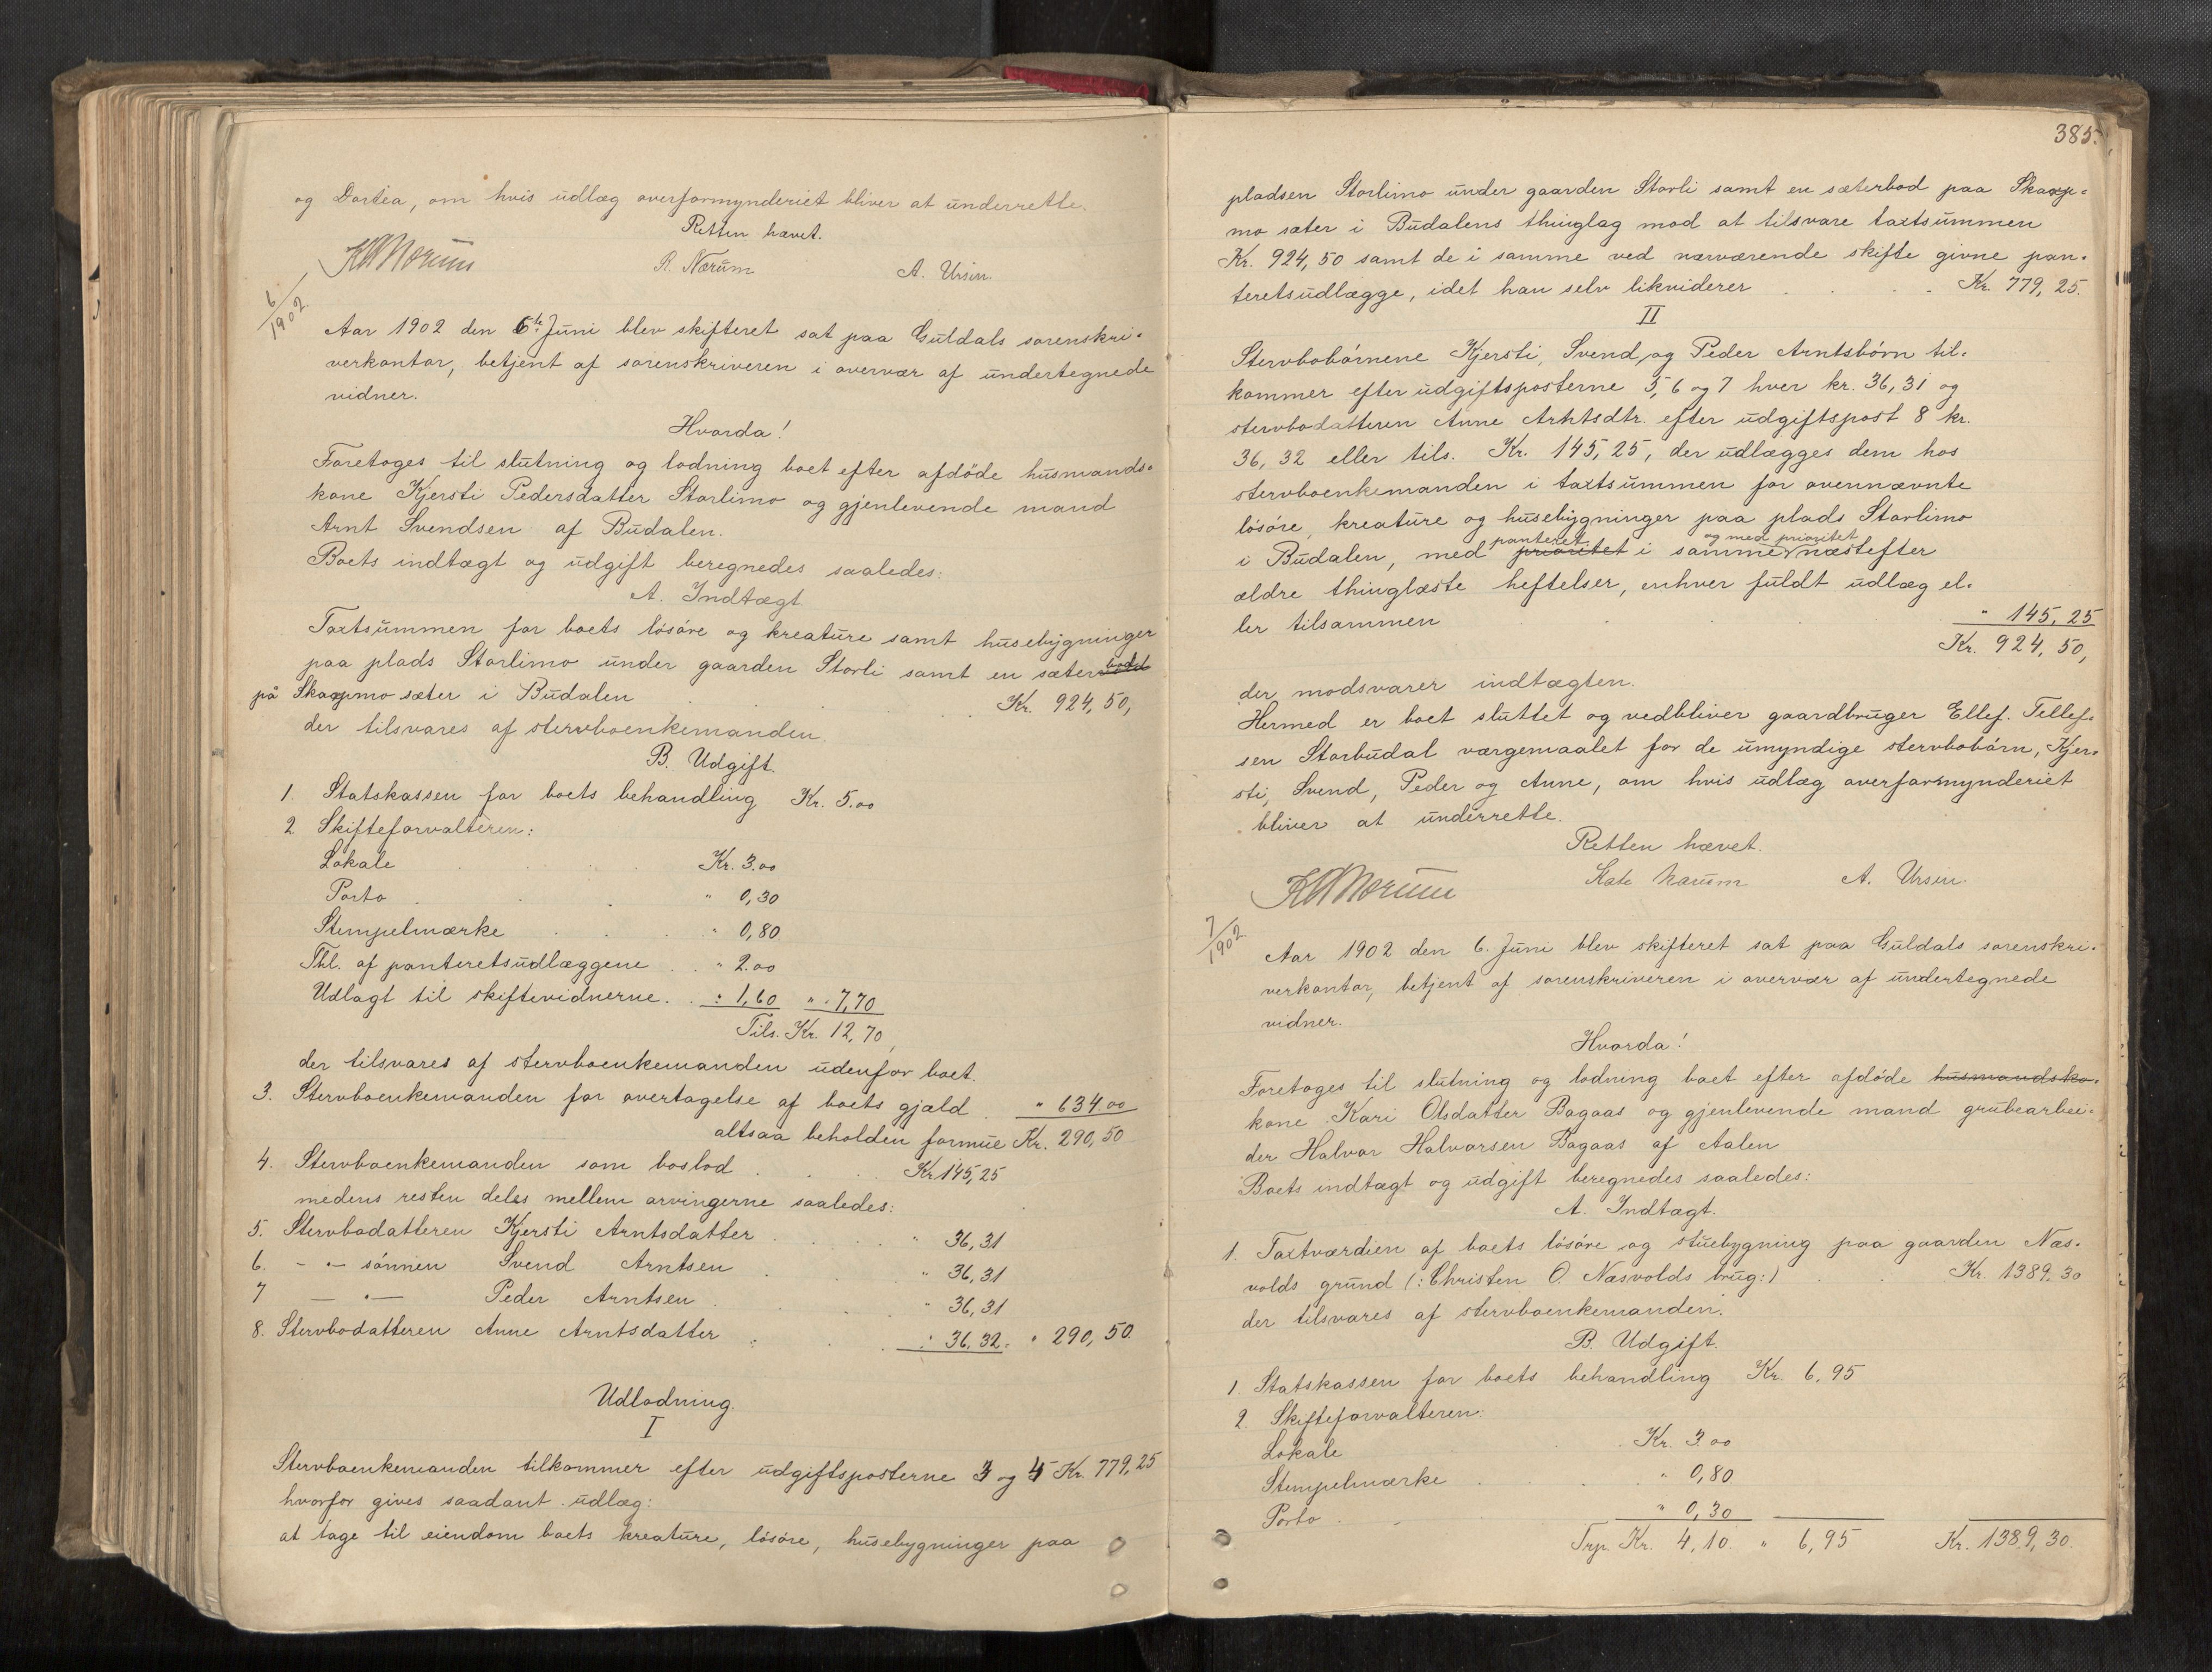 og Dortea, om hvis udlæg overformynderiet bliver at underrette.
Retten hævet.
R. Nærum
A. Ursin.
6/1902.
Aar 1902 den 6te Juni blev skifteret sat paa Guldals sorenskri-
verkontor, betjent af sorenskriveren i overvær af undertegnede
vidner.
Hvorda!
Foretoges til slutning og lodning boet efter afdöde husmands-
kone Kjersti Pedersdatter Storlimo og gjenlevende mand
Arnt Svendsen af Budalen.
Boets indtægt og udgift beregnedes saaledes:
A. Indtægt.
Taxtsummen for boets lösöre og kreature samt husebygninger
paa plads Storlimo under gaarden Storli samt en sæterbod
på Skaapmo sæter i Budalen . . . Kr. 924,50,
der tilsvares af stervboenkemanden.
B. Udgift.
1. Statskassen for boets behandling Kr. 5.00
2. Skifteforvalteren:
Lokale . . . Kr. 3.00
Porto . . . " 0,30
Stempelmærke . . . " 0,80
Thl. af panteretsudlæggene . . " 2.00
Udlagt til skiftevidnerne . . " 1,60 " 7,70
Tils. Kr. 12,70,
der tilsvares af stervboenkemanden udenfor boet.
3. Stervboenkemanden for overtagelse af boets gjæld . " 634.00
altsaa beholden formue Kr. 290,50
4. Stervboenkemanden som boslod . . Kr. 145,25
medens resten deles mellem arvingerne saaledes:
5. Stervbodatteren Kjersti Arntsdatter . . . " 36,31
6. - " - sönnen Svend Arntsen . . " 36,31
7 - " - Peder Arntsen . . . " 36,31
8. Stervbodatteren Anne Arntsdatter . . . " 36,32. " 290,50.
Udlodning.
I
Stervboenkemanden tilkommer efter udgiftsposterne 3 og 4 Kr. 779,25
hvorfor gives saadant udlæg:
at tage til eiendom boets kreature, lösöre, husebygninger paa
385.
pladsen Storlimo under gaarden Storli samt en sæterbod paa Skaap-
mo sæter i Budalens thinglag mod at tilsvare taxtsummen
Kr. 924,50 samt de i samme ved nærværende skifte givne pan-
teretsudlægge, idet han selv likviderer . . . . Kr. 779,25.
II
Stervbobörnene Kjersti, Svend og Peder Arntsbörn til-
kommer efter udgiftsposterne 5, 6 og 7 hver kr. 36,31 og
stervbodatteren Anne Arntsdtr. efter udgiftspost 8 kr.
36,32 eller tils. Kr. 145,25, der udlægges dem hos
stervboenkemanden i taxtsummen for ovennævnte
lösöre, kreature og husebygninger paa plads Storlimo
panteret og med prioritet
i Budalen, med prioritet i samme næstefter
ældre thinglæste heftelser, enhver fuldt udlæg el-
ler tilsammen . . " 145,25
Kr. 924,50,
der modsvarer indtægten.
Hermed er boet sluttet og vedbliver gaardbruger Ellef. Tellef-
sen Storbudal værgemaalet for de umyndige stervbobörn, Kjer-
sti, Svend, Peder og Anne, om hvis udlæg overformynderiet
bliver at underrette.
Retten hævet.
Kate Nærum
A. Ursin.
7/1902.
Aar 1902 den 6. Juni blev skifteret sat paa Guldals sorenskri-
verkontor, betjent af sorenskriveren i overvær af undertegnede
vidner.
Hvorda!
Foretoges til slutning og lodning boet efter afdöde husmandsko-
kone Kari Olsdatter Bagaas og gjenlevende mand grubearbei-
der Halvor Halvorsen Bagaas af Aalen
Boets indtægt og udgift beregnedes saaledes:
A. Indtægt.
1. Taxtværdien af boets lösöre og stuebygning paa gaarden Næs-
volds grund (: Christen O. Næsvolds brug:) . . Kr. 1389.30
der tilsvares af stervboenkemanden.
B. Udgift.
1. Statskassen for boets behandling Kr. 6,95
2. Skifteforvalteren:
Lokale . Kr. 3.00
Stempelmærke . . . " 0,80
Porto . . " 0,30
Trp. Kr. 4,10. " 6,95 Kr. 1389,30.